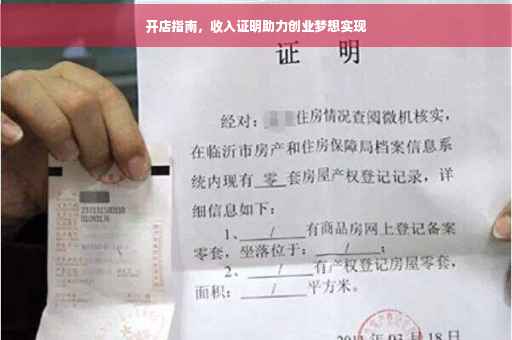 开店指南，收入证明助力创业梦想实现
证 明
经对：住房情况查阅微机核实，
在临沂市房产和住房保障局档案信息系
统内现有 零 套房屋产权登记记录，详
细信息如下：
1、 / 有商品房网上登记备案
零套，坐落位于： / ；
2、 / 有产权登记房屋零套，
面积： / 平方米。
月 18 日